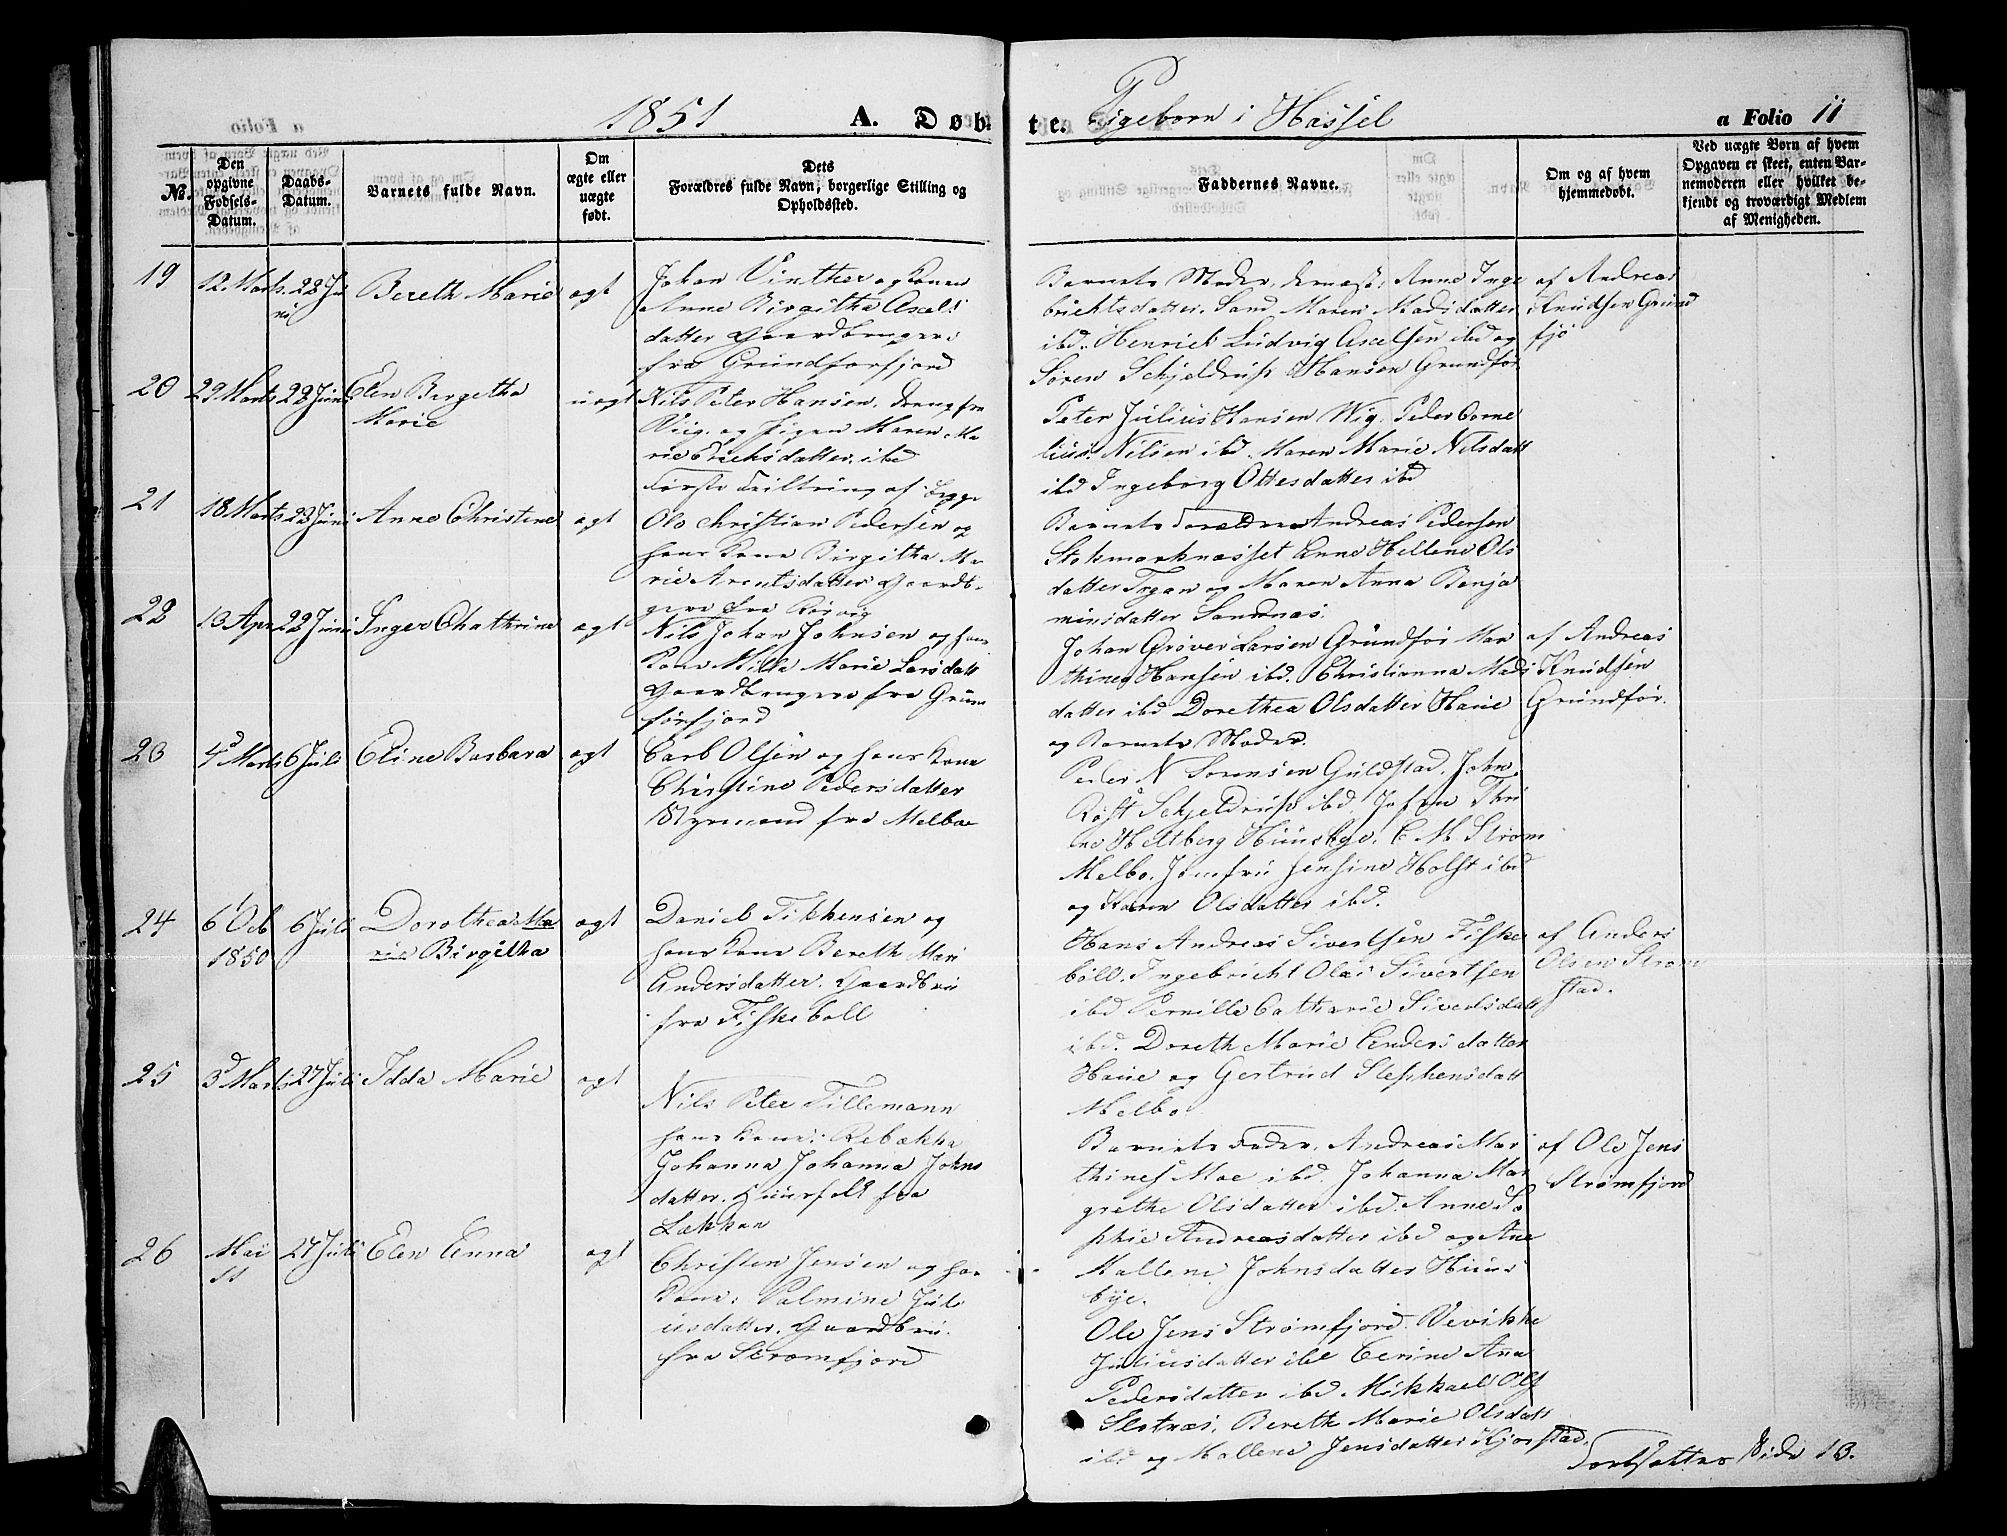 1851
A. Døb
te.
Pigeborn i Hassel
a Folio 11
No.
Den opgivne Fødsels-Datum.
Daabs-Datum.
Barnets fulde Navn.
Om ægte eller uægte født.
Dets
Forældres fulde Navn, borgerlige Stilling og
Opholdssted.
Faddernes Navne.
Om og af hvem
hjemmedøbt.
Ved uægte Børn af hvem
Opgaven er skeet, enten Bar-
nemoderen eller hvilket be-
kjendt og troværdigt Medlem
af Menigheden.
19
12 Marts
22 Ju
ni
Bereth Marie
ægt
Johan Vinther og Konen
Anne Birgitha Axels
datter Gaardbrugere
fra Grundforfjord
Barnets Moder, dernæst: Anne Inge
brichtsdatter Sand Maren Madsdatter
ibd. Henrich Ludvig Axelsen ibd og
Søren Schjeldrup Hansen Grundfør
af Andreas
Knudsen Grund
fjo
20
29 Marts
22 Juni
Elen Birgitha
Marie
uægt
Nils Peter Hansen, dreng fra
Viig, og pigen Maren Ma
rie Erichsdatter ibd
Peter Julius Hansen Wig. Peder Corne
lius Nilsen ibd. Maren Marie Nilsdatt
ibd Ingeborg Ottesdatter ibd
21
18 Marts
22 Juni
Anne Christine
ægt
Ole Christian Pedersen og
hans Kone Birgitha Ma
rie Arentsdatter Gaardb-
gere fra
Barnets Forældre Andreas Pedersen
Stokmarknæsset Anne Hellene Ols
datter og Maren Anna Benja
minsdatter Sandnæs.
22
13 Apr
22 Juni
Inger Chathrine
ægt
Nils Johan Johnsen og hans
Kone Marie Larsdatt
Gaardbrugere fra Grun
førfjord
Johan Grøver Larsen Grundfør Mar
thines Hansen ibd. Christianna Mads
datter ibd Dorethea Olsdatter Haue
og Barnets Moder.
af Andreas
Knudsen
Grundfør.
23
4d Marts
6 Juli
Eline Barbara
ægt
Carl Olsen og hans Kone
Christine Pedersdatter
Styrmand fra Melboe
Peder N Sørensen Guldstad. John
Røst Schjeldrup ibd Jfru Thri
ne Heltberg Huusbye. C M Strøm
Melbo. Jomfru Jensine Holst ibd
og Karen Olsdatter ibd.
24
6 Octb
1850
6 Juli
Dorothea Ma
rie Birgitha
ægt
Daniel Tikkensen og
hans Kone Bereth Mari
Andersdatter. Gaardbru
fra Fiskebøll
Hans Andreas Sivertsen Fiske
bøll. Ingebricht Olai Sivertsen
ibd Pernille Catharie Sivertsdatt
ibd. Doreth Marie Anders datter
Haue og Gertrud Stephensdatt
Melbo.
af Anders
Olsen Strøm
stad.
25
3d Marts
27 Juli
Idda Marie
ægt
Nils Peter Tillemann
hans Kone: Rebækka
Johanna Johanna Johns
datter. Huusfolk fra
Løkkan
Barnets Fader. Andreas Mar
thines Moe ibd. Johanna Mar
grethe Olsdatter ibd. Anne So
phie Andreasdatter ibd og Ane
Mallene Johnsdatter Huus
bye.
af Ole Jens
Strømfjord
26
Mai
11
27 Juli
Elen Anna
ægt
Christen Jensen og hans
Kone: Palmine Juli
usdatter. Gaardbru.
fra Strømfjord
Ole Jens Strømfjord. Vevikke
Juliusdatter ibd Ane
Pedersdatter ibd. Mikkael Ols
Bereth Marie Olsdatt
ibd og Mallene Jensdatter Kjørstad.
Fortsættes Side 13.